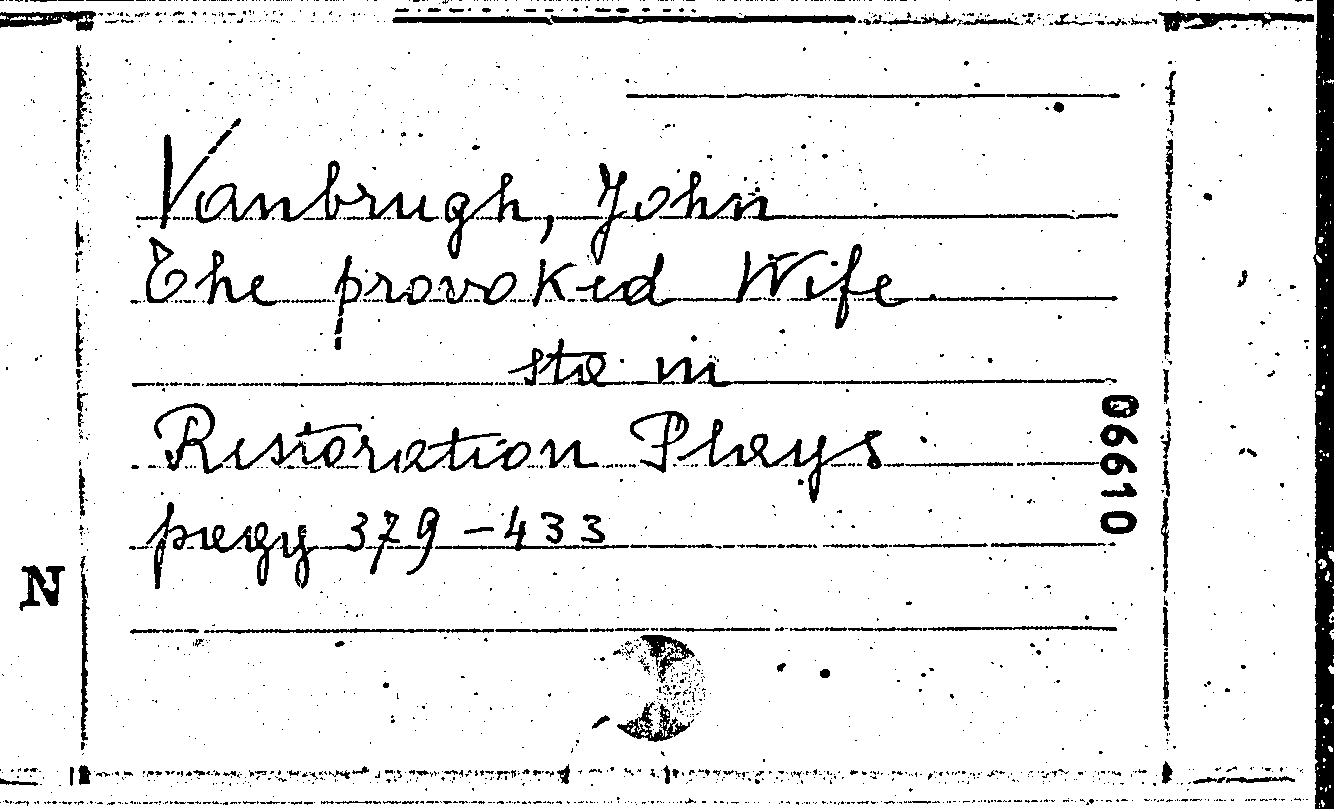 Vanbrugh, John
The provoked Wife
sta in
Restoration Plays
pagg 379-433
06610
N